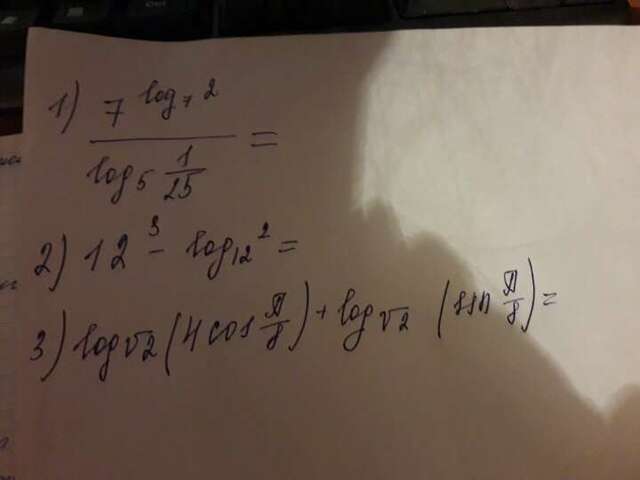 1) 7^{log_7 2} / log_5 1/25 =
2) 12^{3} - log_{12} 2 =
3) log_{√2} (4cos π/8) + log_{√2} (sin π/8) =